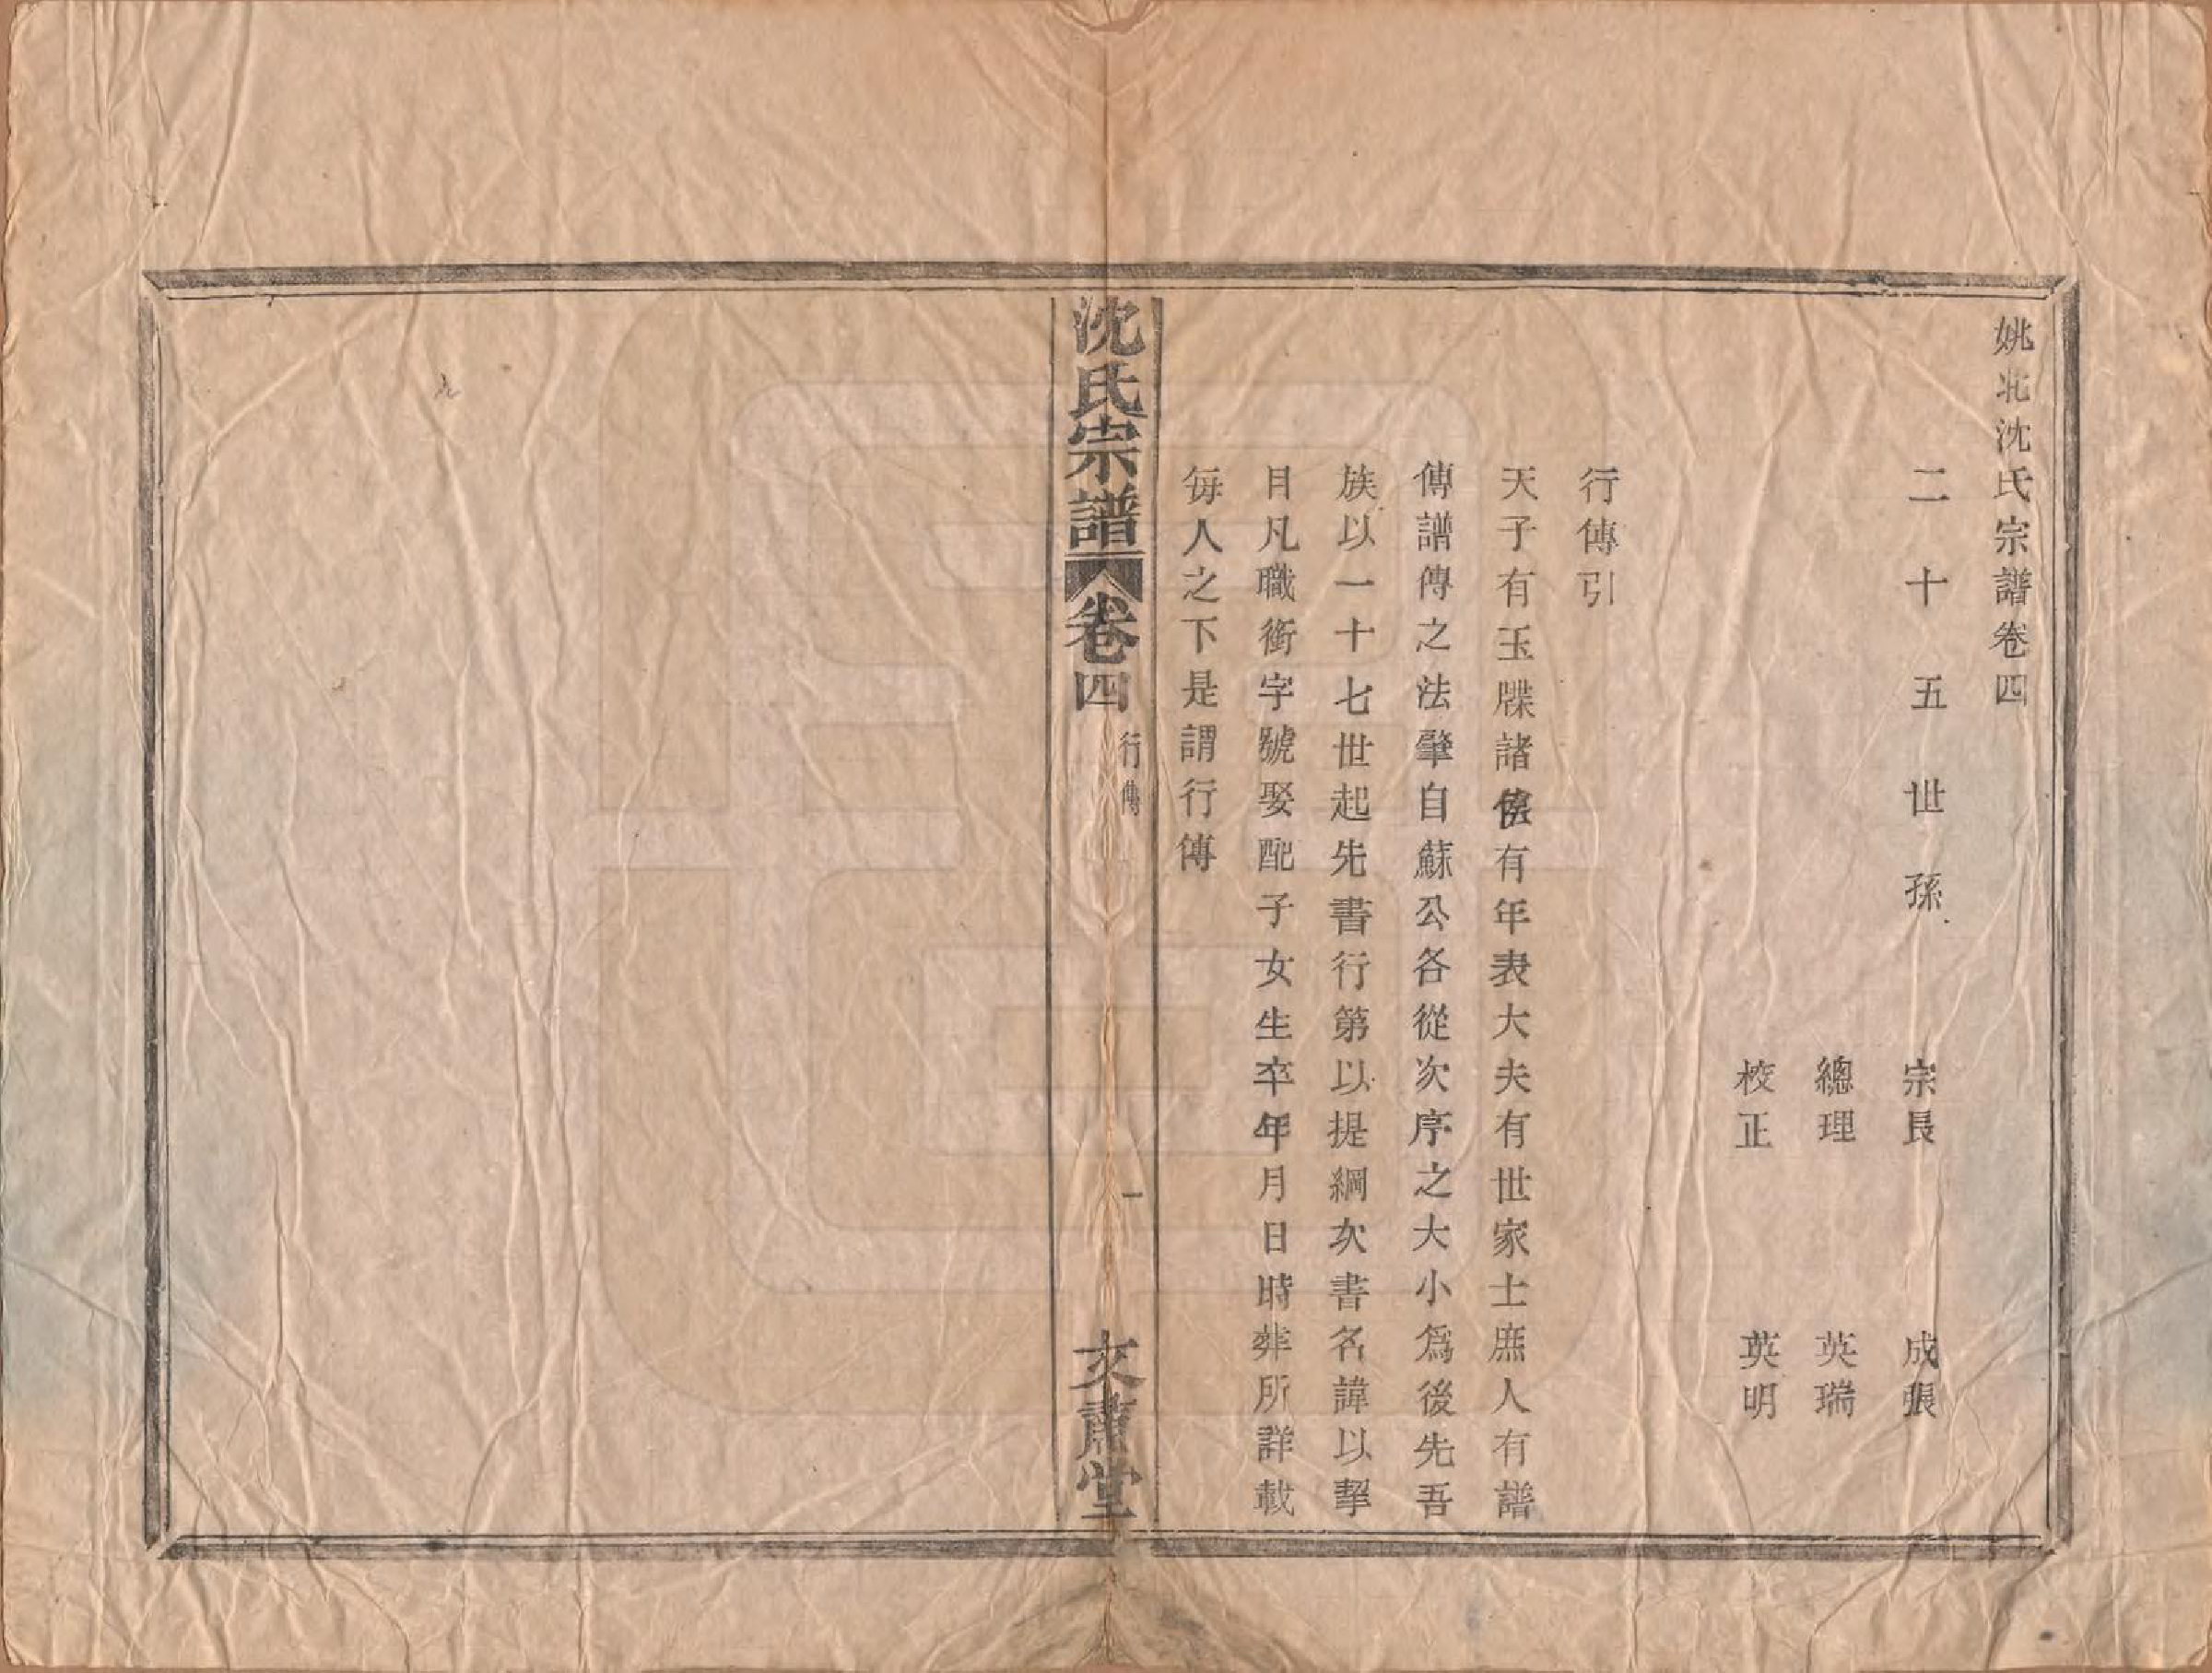 姚北沈氏宗譜卷四
二十五世孫 宗長 成張
總理 英瑞
校正 英明
行傳引
天子有玉牒諸侯有年表大夫有世家士庶人有譜
傳譜傳之法肇自蘇公各從次序之大小爲後先吾
族以一十七世起先書行第以提綱次書名諱以挈
目凡職銜字號娶配子女生卒年月日時葬所詳載
每人之下是謂行傳
沈氏宗譜 卷四 行傳 一 文肅堂